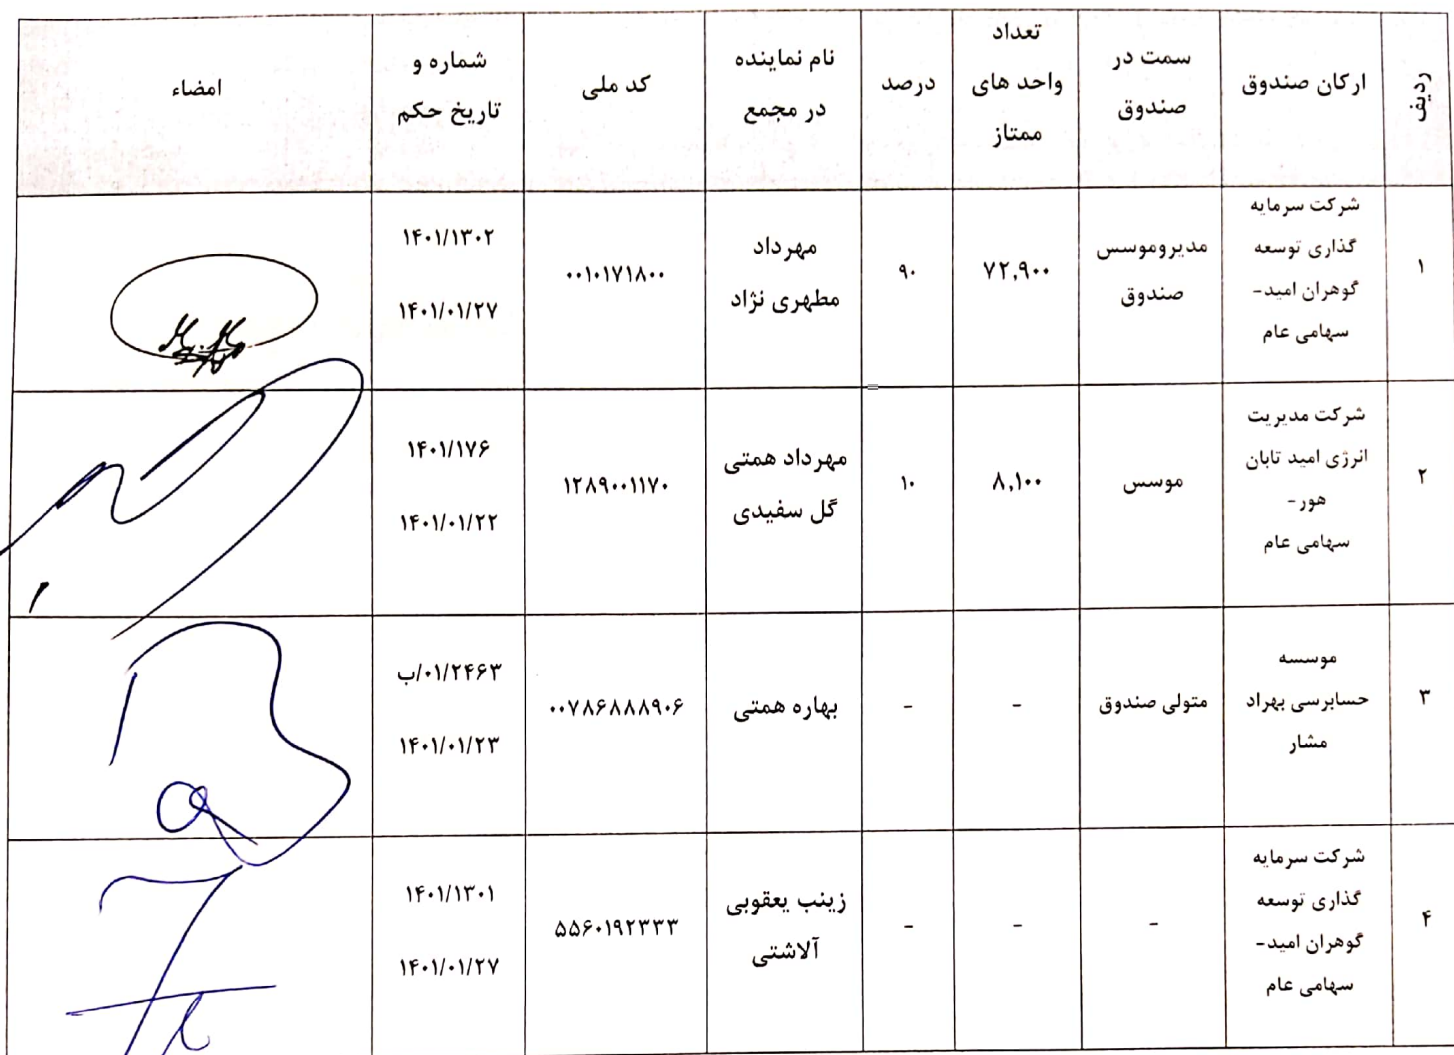 ردیف
ارکان صندوق
سمت در
صندوق
تعداد
واحد های
ممتاز
درصد
نام نماینده
در مجمع
کد ملی
شماره و
تاریخ حکم
امضاء
۱
شرکت سرمایه
گذاری توسعه
گوهران امید-
سهامی عام
مدیروموسس
صندوق
۷۲,۹۰۰
۹۰
مهرداد
مطهری نژاد
۰۰۱۰۱۷۱۸۰۰
۱۴۰۱/۱۳۰۲
۱۴۰۱/۰۱/۲۷
۲
شرکت مدیریت
انرژی امید تابان
هور-
سهامی عام
موسس
۸,۱۰۰
۱۰
مهرداد همتی
گل سفیدی
۱۲۸۹۰۰۱۱۷۰
۱۴۰۱/۱۷۶
۱۴۰۱/۰۱/۲۲
۳
موسسه
حسابرسی بهراد
مشار
متولی صندوق
-
-
بهاره همتی
۰۰۷۸۶۸۸۸۹۰۶
۰۱/۲۴۶۳/ب
۱۴۰۱/۰۱/۲۳
۴
شرکت سرمایه
گذاری توسعه
گوهران امید-
سهامی عام
-
-
-
زینب یعقوبی
آلاشتی
۵۵۶۰۱۹۲۳۳۳
۱۴۰۱/۱۳۰۱
۱۴۰۱/۰۱/۲۷